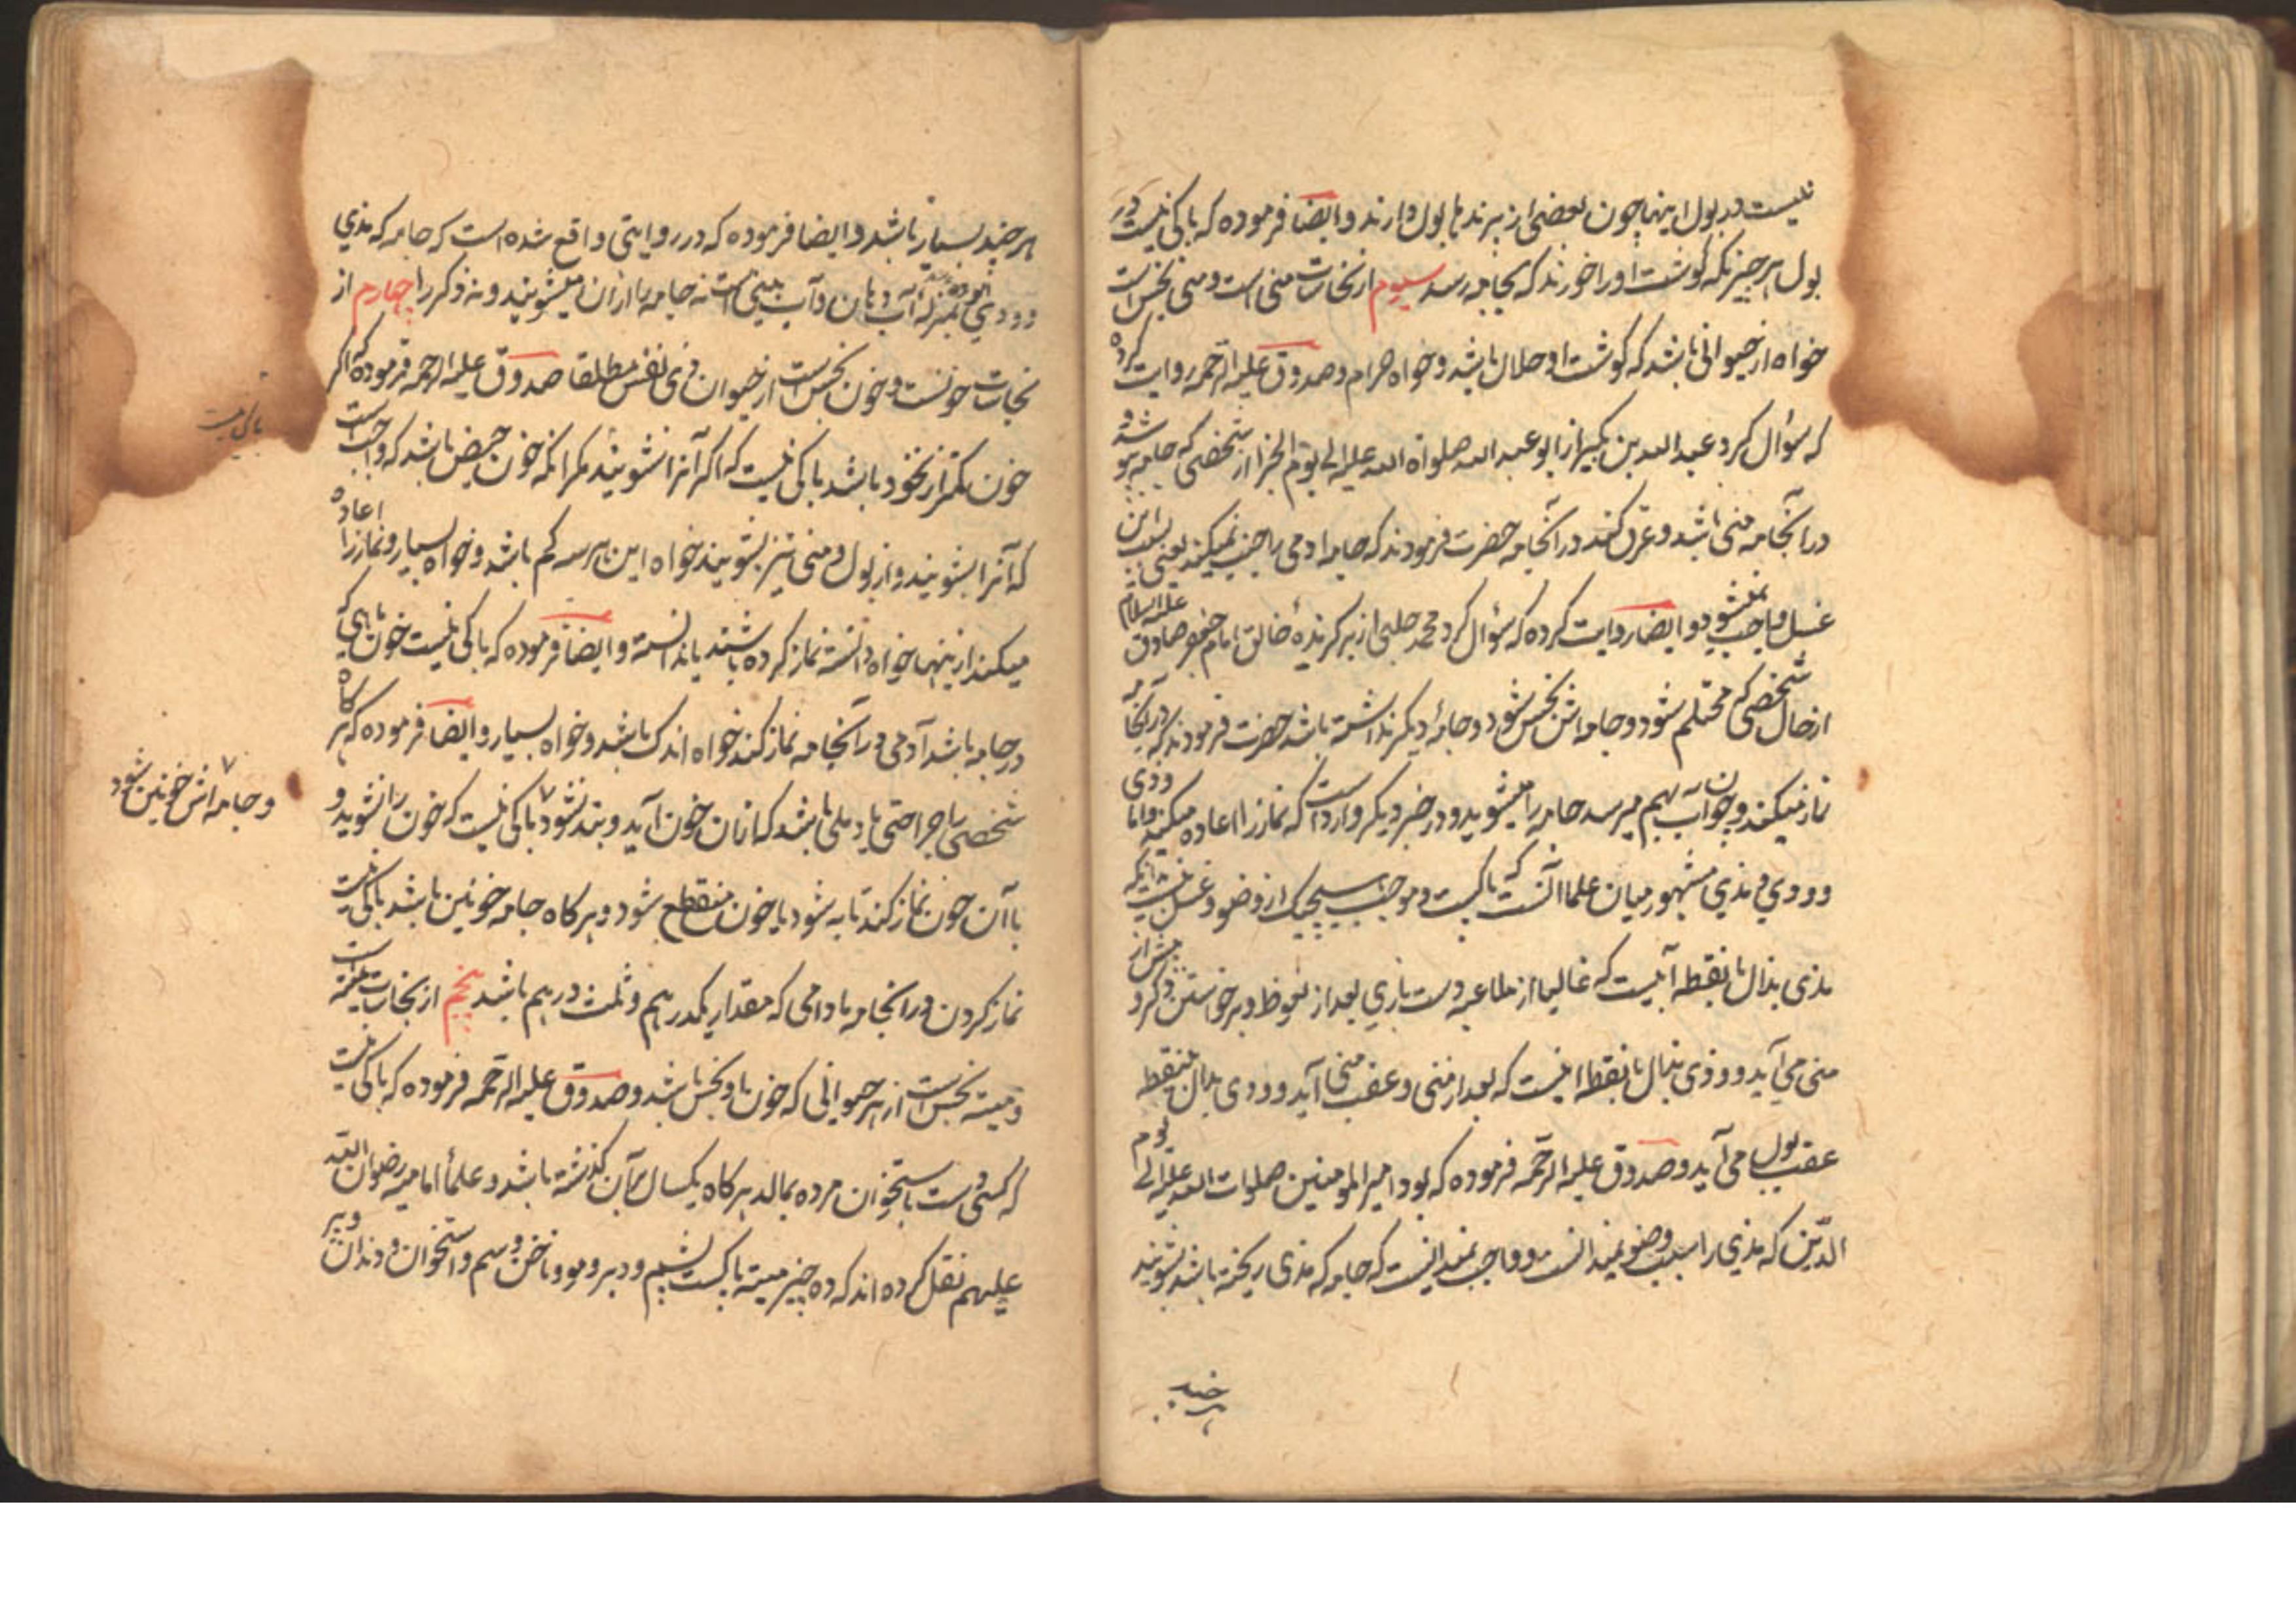 نیست در بول اینها چون بعضی از برند با بول دارند و ایضا فرموده که باکی نیست در
بول هر چیز که گوشت او را خورند که بجامه رسد سیوم از نجاسات منی است و منی نجس است
خواه از حیوانی باشد که گوشت او حلال باشد و خواه حرام و صدوق علیه الرحمه روایت کرده
که سؤال کرد عبد الله بن بکیر از ابو عبد الله صلواة الله علیه الی یوم الجزا از شخصی که جامه پوشد و
در آنجامه منی باشد و عرق کند در آنجامه حضرت فرمودند که جامه ادمی را جنب نمیکند یعنی بسبب این
غسل واجب نمیشود و ایضا روایت کرده که سؤال کرد محمد حلبی از برکزیدهٔ خالق امام جعفر صادق علیه السلام
از حال شخصی که محتلم شود و جامه اش نجس شود و جامهٔ دیکر نداشته باشد حضرت فرمودند که در آنجامه
نماز میکند و چون آب بهم میرسد جامه را میشوید و در خبر دیکر وارد است که نماز را اعاده میکند و اما ودی
و وذی و مذی مشهور میان علما آنست که پاکست و موجب هیچیک از وضو و غسل نیست بدانکه
مذی بذال با نقطه آبیست که غالبا از ملاعبه و دست بازی بعد از نعوظ و برخواستن ذکر و پیش از
منی می آید و وذی بذال با نقطه ابیست که بعد از منی و عقب منی آید و ودی بدال بی نقطه
عقب بول می آید و صدوق علیه الرحمه فرموده که بود امیر المومنین صلوات الله علیه الی یوم
الدین که مذی را سبب وضو نمیدانست و واجب نمیدانست که جامه که مذی ریخته باشد بشویند
هر چند
هر چند بسیار باشد و ایضا فرموده که در روایتی واقع شده است که جامه که مذی
و ودی بمنزله آب دهان و آب بینی است نه جامه را ازان میشویند و نه ذکر را چهارم از
نجاسات خونست و خون نجس است از حیوان ذی نفس مطلقا صدوق علیه الرحمه فرموده که اکر
خون کمتر از نخود باشد باکی نیست که اکر آنرا نشویند مکر آنکه خون حیض باشد که واجب است
که آنرا بشویند و از بول و منی نیز بشویند خواه این هر سه کم باشد و خواه بسیار و نماز را اعاده
میکند از ینها خواه دانسته نماز کرده باشند یا ندانسته و ایضا فرموده که باکی نیست خون ماهی که
در جامه باشد آدمی در آنجامه نماز کند خواه اندک باشد و خواه بسیار و ایضا فرموده که هر کاه
شخصی را جراحتی یا دملی باشد که ازان خون آید و بند نشود باکی نیست که خون را نشوید و
و جامه اش خونین شود
با آن خون نماز کند تا به شود یا خون منقطع شود و هر کاه جامه خونین باشد باکی نیست
نماز کردن در انجامه مادامی که مقدار یکدرهم و ثلث درهم باشد پنجم از نجاسات میته است
و میته نجس است از هر حیوانی که خون او نجس باشد و صدوق علیه الرحمه فرموده که باکی نیست
که کسی دست باستخوان مرده بمالد هر کاه یکسال بر آن کذشته باشد و علمأ امامیه رضوان الله
علیهم نقل کرده اند که ده چیز میته پاکست پشم و وبر و مو و ناخن و سم و استخوان و دندان و پر